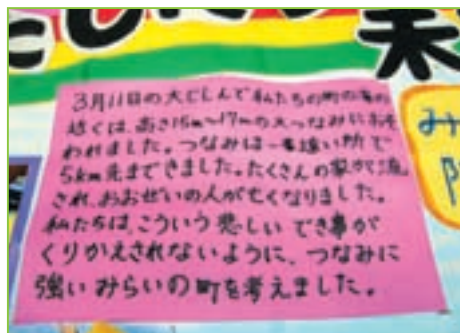 たしたち
未
3月11日の大じしんで私たちの町の海の
近くは、高さ15m〜17mの大つなみにおそ
われました。つなみは一番遠い所で
5km先まできました。たくさんの家が流
され、おおぜいの人が亡くなりました。
私たちは、こういう悲しいでき事が
くりかえされないように、つなみに
強いみらいの町を考えました。